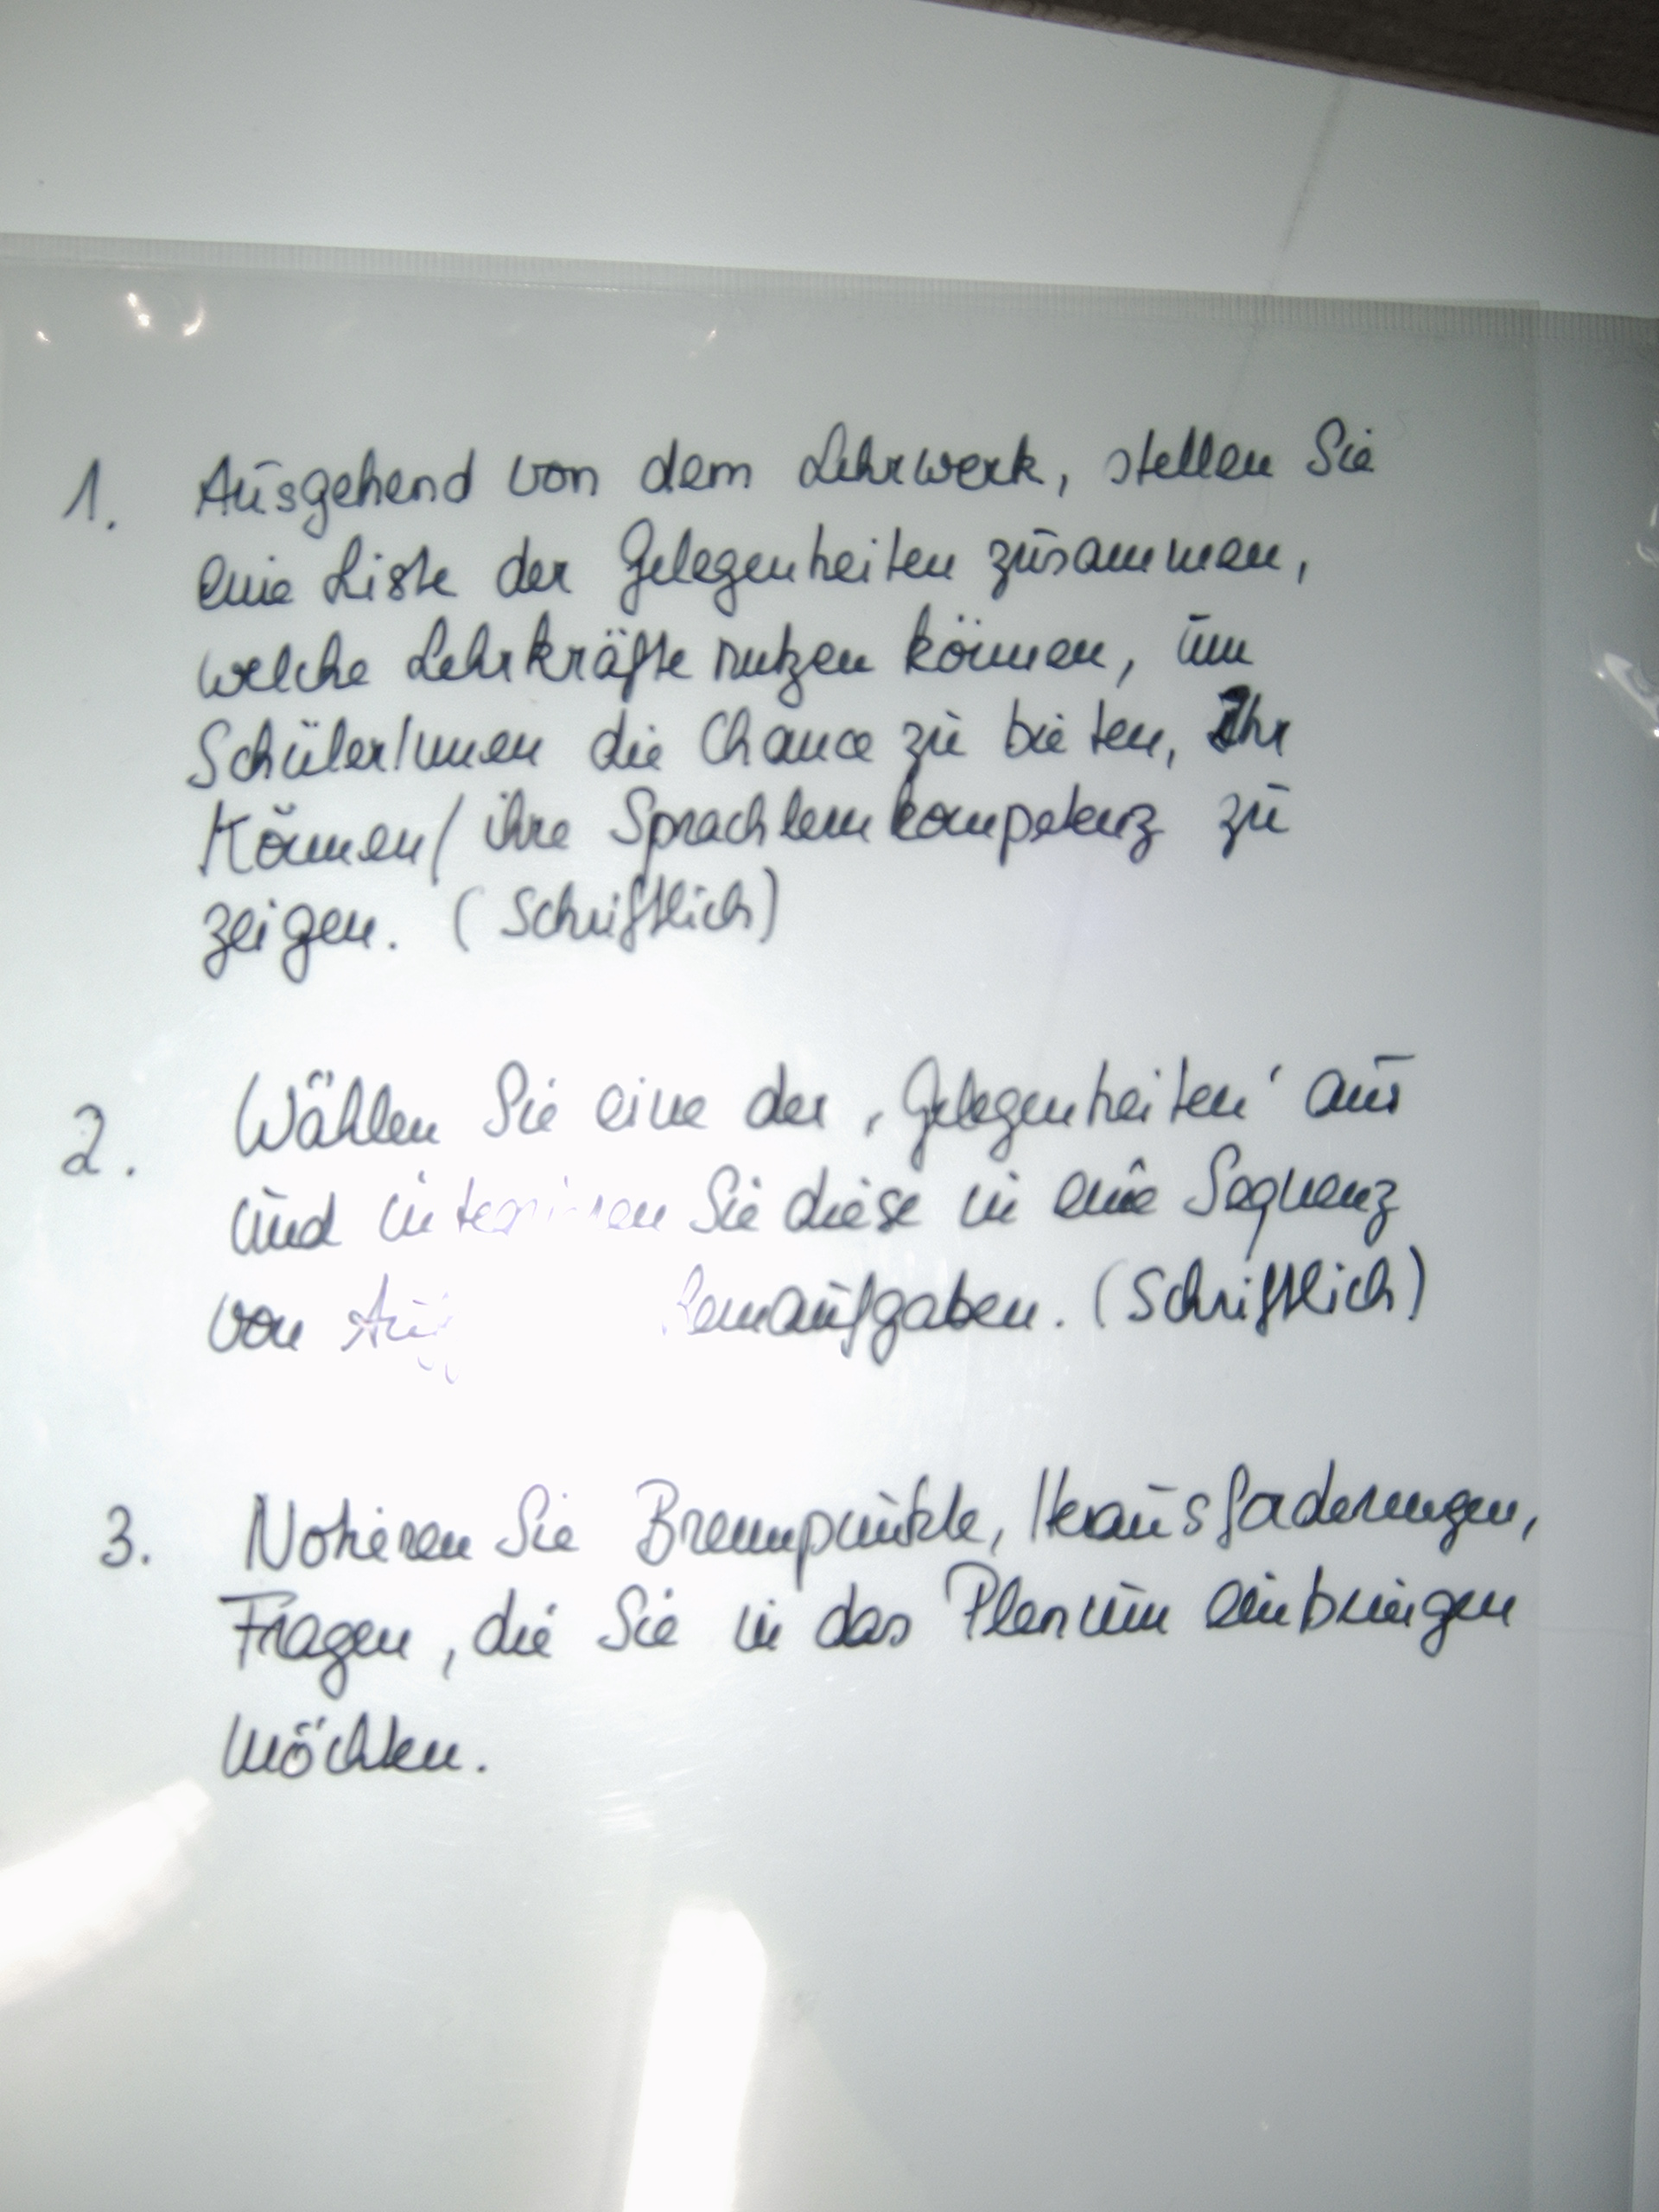 1. Ausgehend von dem Lehrwerk, stellen Sie
eine Liste der Gelegenheiten zusammen,
welche Lehrkräfte nutzen können, um
SchülerInnen die Chance zu bieten, Ihr
Können/ ihre Sprachlernkompetenz zu
zeigen. (Schriftlich)
2. Wählen Sie eine der ‚Gelegenheiten' aus
und integrieren Sie diese in eine Sequenz
von Lernaufgaben. (Schriftlich)
3. Notieren Sie Brennpunkte, Herausforderungen,
Fragen, die Sie in das Plenum einbringen
möchten.